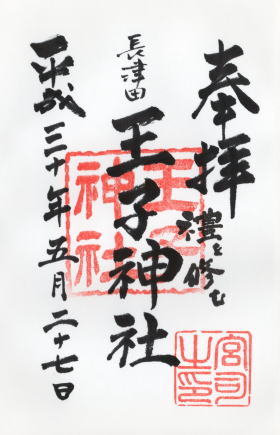 奉拝
禮を修む
長津田
王子神社
平成三十年五月二十七日
王子神社
宮司之印